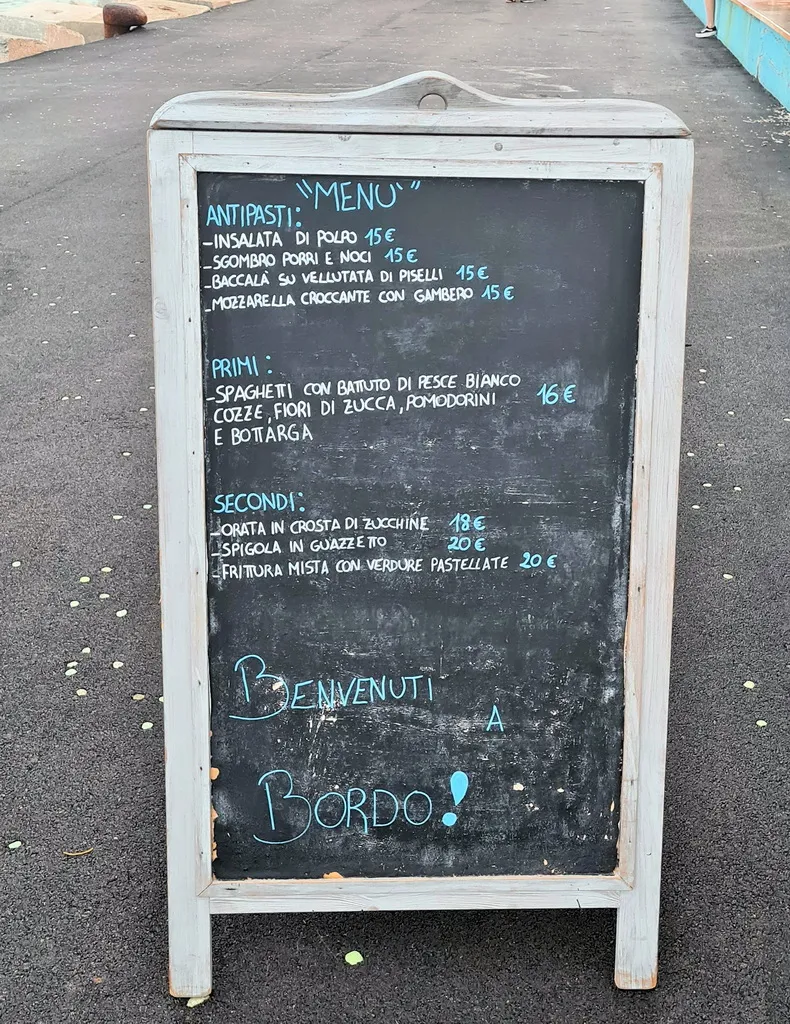 "MENU'"
ANTIPASTI:
-INSALATA DI POLPO 15€
-SGOMBRO PORRI E NOCI 15€
-BACCALÀ SU VELLUTATA DI PISELLI 15€
-MOZZARELLA CROCCANTE CON GAMBERO 15€
PRIMI:
-SPAGHETTI CON BATTUTO DI PESCE BIANCO
COZZE, FIORI DI ZUCCA, POMODORINI 16€
E BOTTARGA
SECONDI:
-ORATA IN CROSTA DI ZUCCHINE 18€
-SPIGOLA IN GUAZZETTO 20€
-FRITTURA MISTA CON VERDURE PASTELLATE 20€
BENVENUTI
A
BORDO!